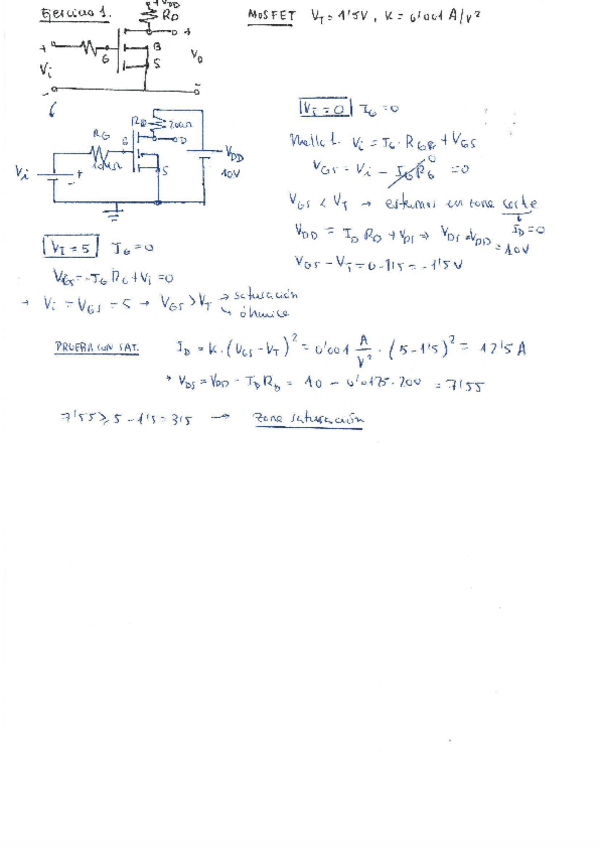 Ejercicio 1.
MOSFET V_T = 1'5V, K = 0'001 A/V²
+V_DD
R_D
D
+
G
B
S
V_i
V_o
-
R_D
200Ω
R_G
G
D
S
V_DD
10V
V_i
+
-
V_i = 0 I_G = 0
Malla 1. V_i = I_G · R_G + V_GS
V_GS = V_i - I_G R_G = 0
0
V_GS < V_T → estamos en zona corte
I_D = 0
V_DD = I_D R_D + V_DS ⇒ V_DS = V_DD = 10V
V_GS - V_T = 0 - 1'5 = -1'5V
V_I = 5 I_G = 0
V_GS = -I_G R_G + V_i = 0
→ V_i = V_GS = 5 → V_GS > V_T → saturación
↳ óhmica
PRUEBA CON SAT. I_D = K · (V_GS - V_T)² = 0'001 A/V² · (5 - 1'5)² = 12'5 A
→ V_DS = V_DD - I_D R_D = 10 - 0'0125 · 200 = 7'55
7'55 ≥ 5 - 1'5 = 3'5 → Zona saturación